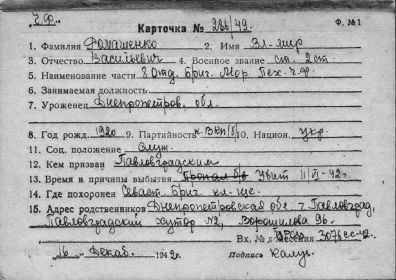 Ч.Ф. Ф. №1
Карточка № 286/49.
1. Фамилия Фомашенко 2. Имя Вл-мир
3. Отчество Васильевич 4. Военное звание ст. 2 ст.
5. Наименование части 8 Отд. Бриг. Мор. Пех. Ч.Ф.
6. Занимаемая должность
7. Уроженец Днепропетров. обл.
8. Год рожд. 1920 9. Партийность к. ВКП/б/ 10. Национ. укр.
11. Соц. положение служ.
12. Кем призван Павловградским
13. Время и причины выбытия Пропал б/в Убит 11/VI-42г.
14. Где похоронен Севаст. Бриг. кл-ще.
15. Адрес родственников Днепропетровская обл. г. Павлоград,
Павловградский хутор №2, Ворошилова 96.
Вх. № донесения 3076сс-42.
16 Декаб. 1949 г. Подпись